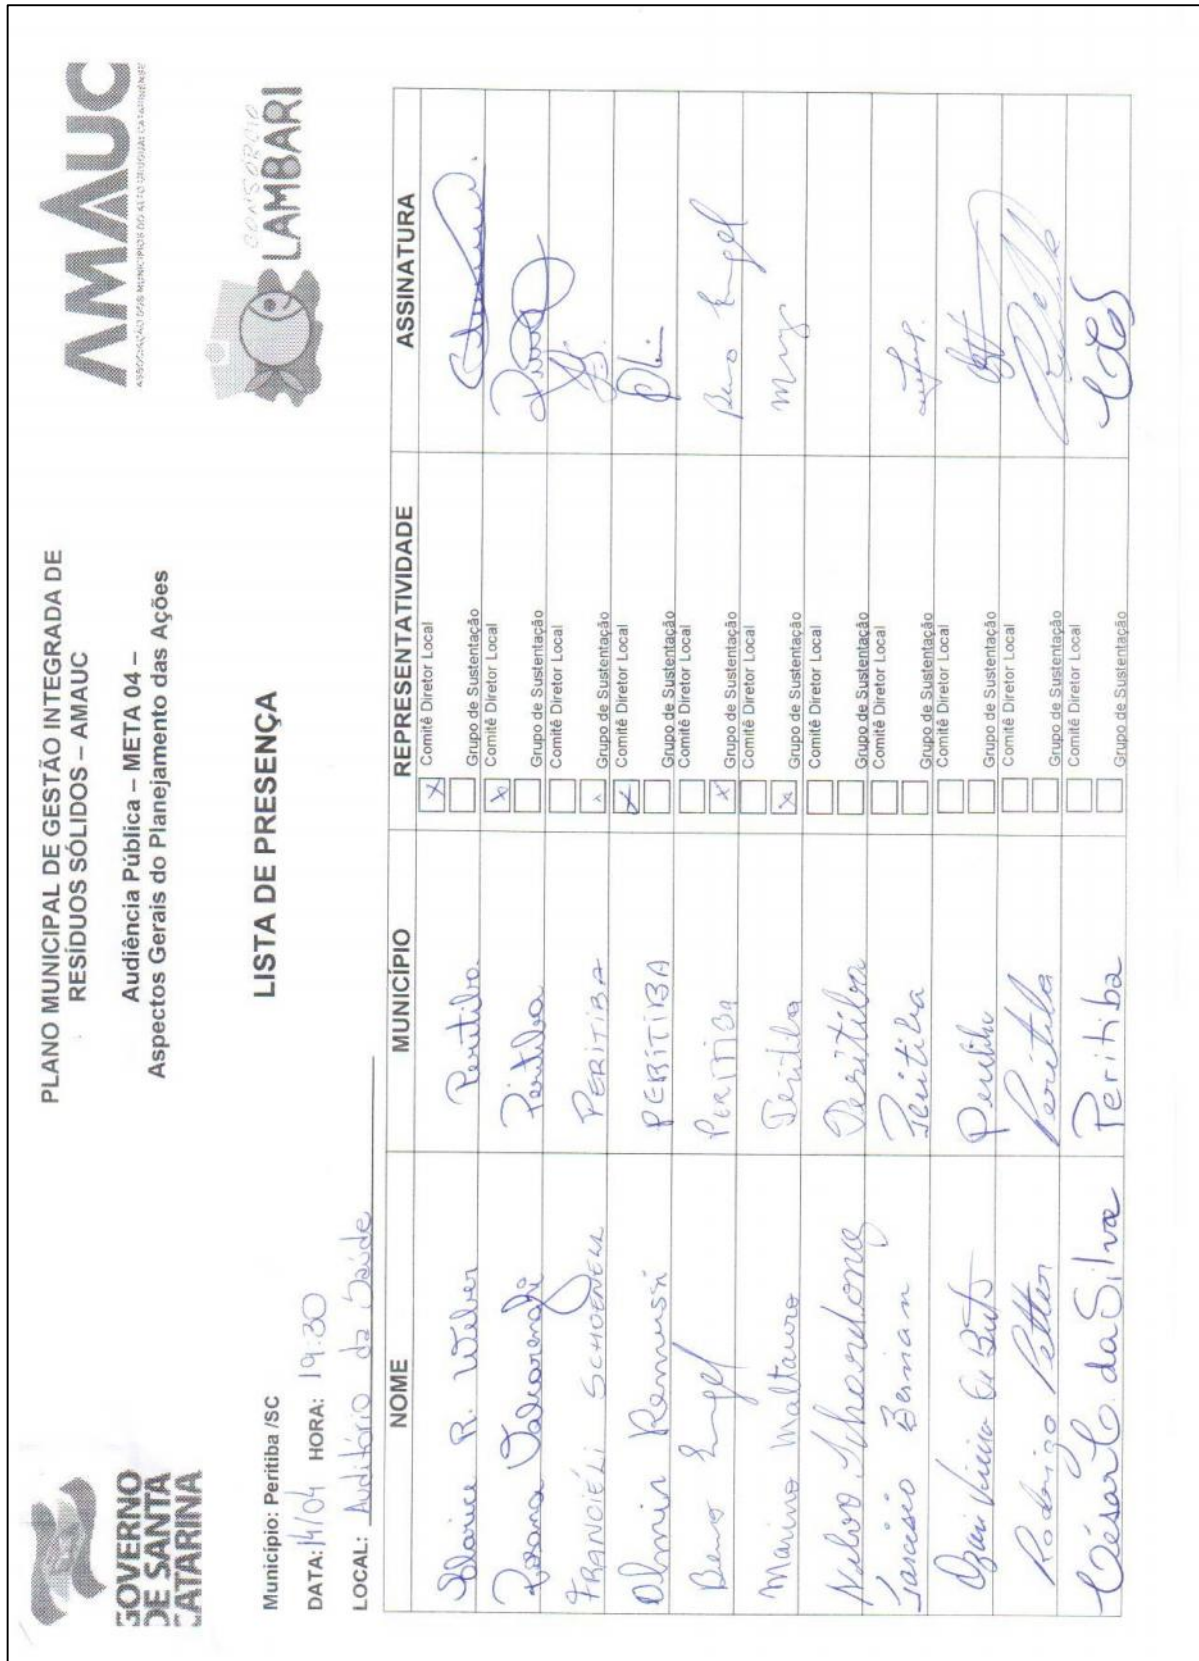 GOVERNO
DE SANTA
CATARINA
PLANO MUNICIPAL DE GESTÃO INTEGRADA DE
RESÍDUOS SÓLIDOS – AMAUC
Audiência Pública – META 04 –
Aspectos Gerais do Planejamento das Ações
AMAUC
ASSOCIAÇÃO DOS MUNICÍPIOS DO ALTO URUGUAI CATARINENSE
CONSÓRCIO
LAMBARI
LISTA DE PRESENÇA
Município: Peritiba /SC
DATA: 14/04 HORA: 19:30
LOCAL: Auditório da Saúde
NOME MUNICÍPIO REPRESENTATIVIDADE ASSINATURA
R. Weber Peritiba. X Comitê Diretor Local
Grupo de Sustentação
Peritiba X Comitê Diretor Local
Grupo de Sustentação
FRANCIÉLI SCHOENELL PERITIBA Comitê Diretor Local
Grupo de Sustentação
Remussi PERITIBA X Comitê Diretor Local
Grupo de Sustentação
Beno Engel PERITIBA Comitê Diretor Local Beno Engel
X Grupo de Sustentação
Marino Maltauro Peritiba Comitê Diretor Local
X Grupo de Sustentação
Peritiba Comitê Diretor Local
Grupo de Sustentação
Tarcisio Peritiba Comitê Diretor Local
Grupo de Sustentação
Peritiba Comitê Diretor Local
Grupo de Sustentação
Rodrigo Petter Peritiba Comitê Diretor Local
Grupo de Sustentação
César C. da Silva Peritiba Comitê Diretor Local
Grupo de Sustentação